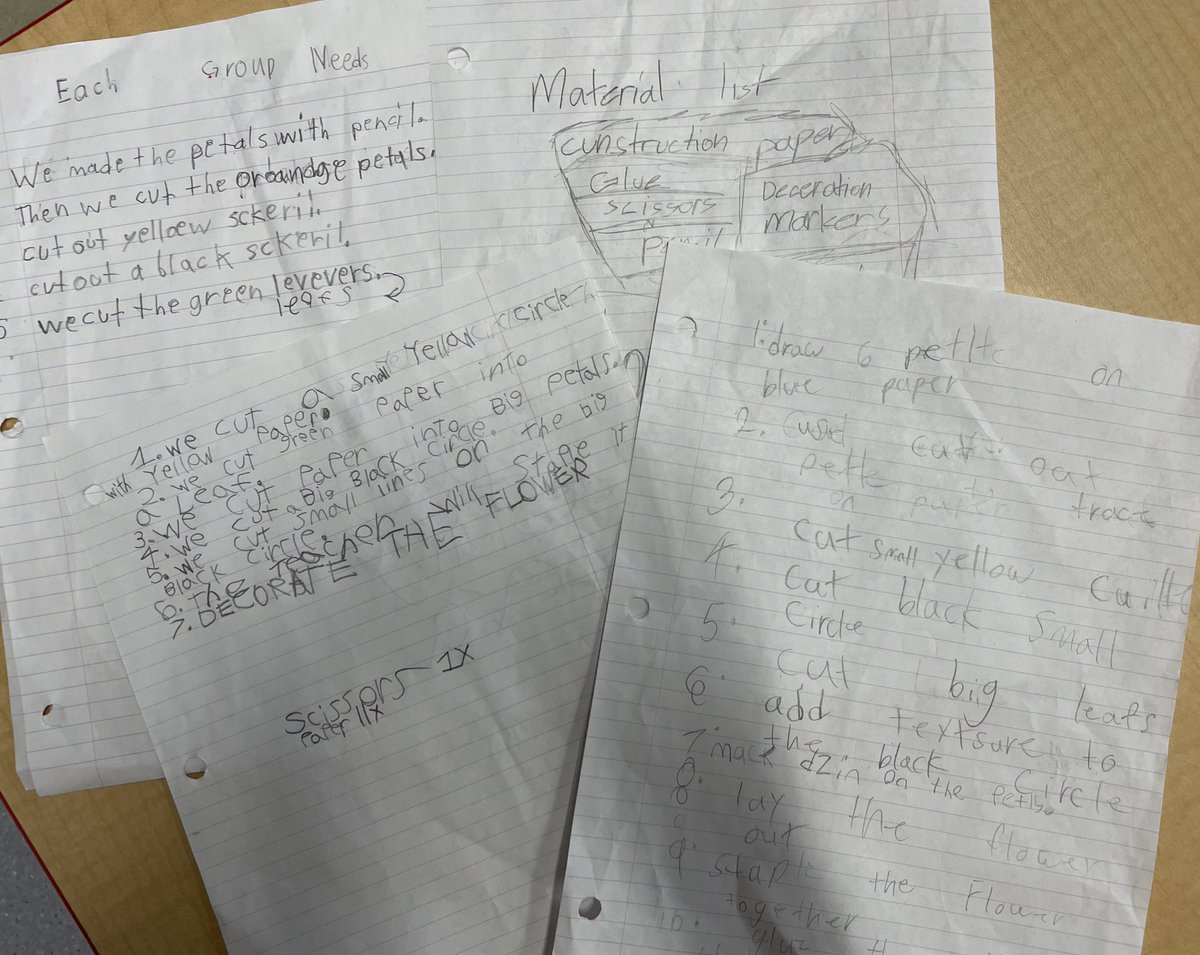 Each Group Needs
We made the petals with pencil.
Then we cut the orbandge petals.
cut out yelloew sckeril.
cut out a black sckeril.
5 we cut the green levevers.
leafs
Material list
cunstruction paper
Glue
scissors
Pencil
Deceration
markers
1. we cut a small Yellow circle
with Yellow paper.
2. we cut green paper into
a Leaf.
3. we cut paper into Big petals.
4. we cut a Big Black circle.
5. we cut small lines on the big
Black circle.
6. The Teacher will staple it
7. DECORATE THE FLOWER
scissors 1x
Paper 11x
1. draw 6 petltc on
blue paper
2. cut out
petlt
on paper trace
3. cut small yellow
4. cut black small
5. Circle
cut big leafs
6. add textsure to
the black Circle
7. mack dzin on the petls.
8. lay the flower
out
9. staple the Flower
together
10. glue